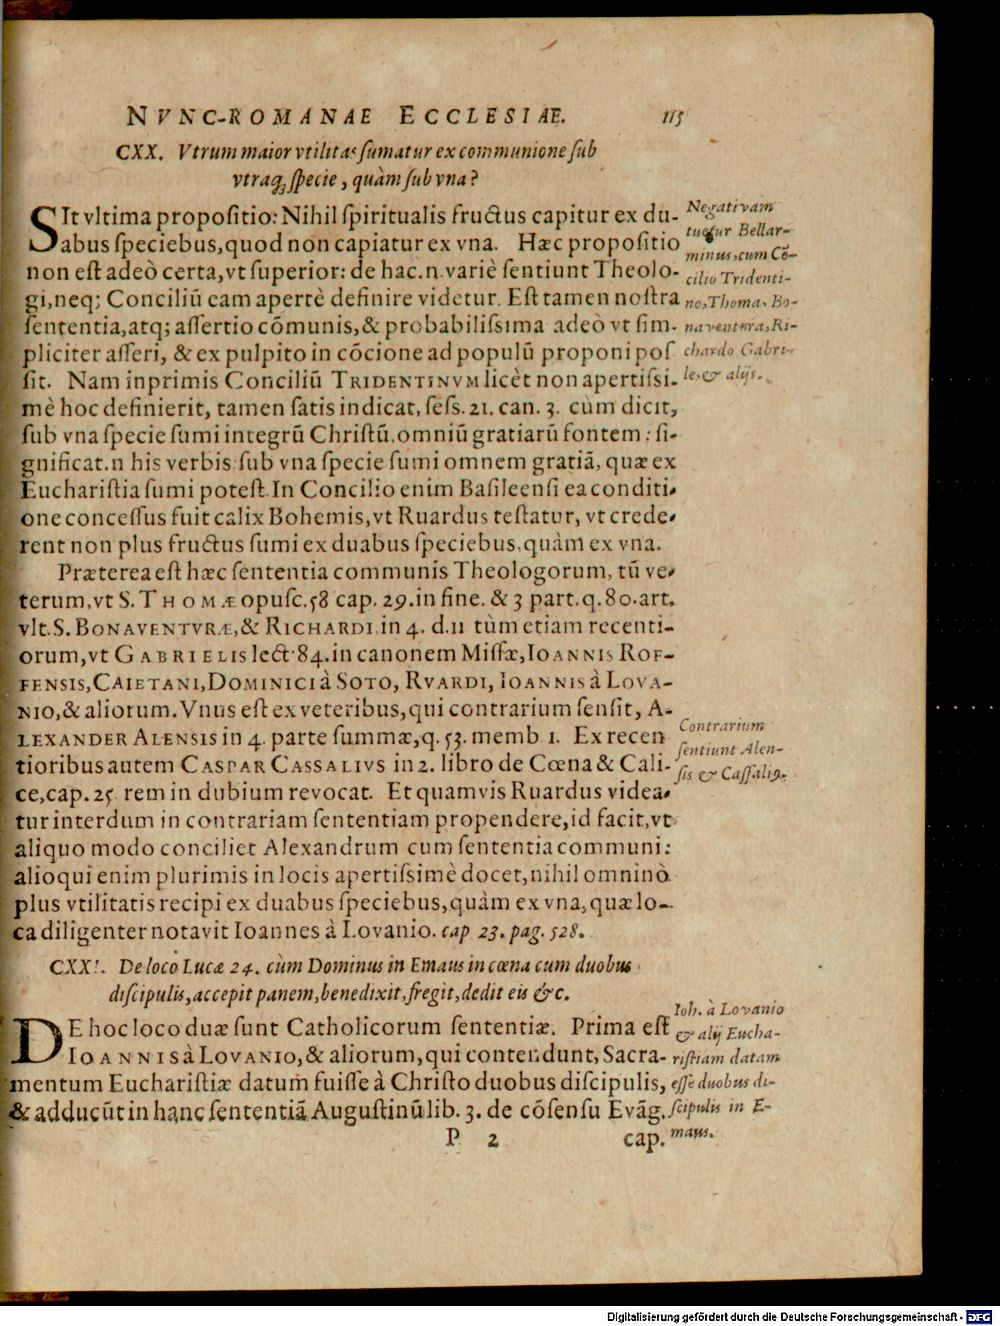 NVNC-ROMANAE ECCLESIAE. 115
CXX. Vtrum maior vtilitas sumatur ex communione sub
vtraq; specie, quàm sub vna?
SIt vltima propositio: Nihil spiritualis fructus capitur ex du-
abus speciebus, quod non capiatur ex vna. Hæc propositio
non est adeò certa, vt superior: de hac .n. variè sentiunt Theolo-
gi, neq; Conciliũ eam apertè definire videtur. Est tamen nostra
sententia, atq; assertio cõmunis, & probabilissima adeò vt sim-
pliciter asseri, & ex pulpito in cõcione ad populũ proponi pos
sit. Nam inprimis Conciliũ TRIDENTINVM licèt non apertissi-
mè hoc definierit, tamen satis indicat, sess. 21. can. 3. cùm dicit,
sub vna specie sumi integrũ Christũ, omniũ gratiarũ fontem: si-
gnificat .n his verbis: sub vna specie sumi omnem gratiã, quæ ex
Eucharistia sumi potest. In Concilio enim Basileensi ea conditi-
one concessus fuit calix Bohemis, vt Ruardus testatur, vt crede-
rent non plus fructus sumi ex duabus speciebus, quàm ex vna.
Præterea est hæc sententia communis Theologorum, tũ ve-
terum, vt S. THOMÆ opusc. 58 cap. 29. in fine. & 3 part. q. 80. art.
vlt. S. BONAVENTVRÆ, & RICHARDI. in 4. d. 11 tùm etiam recenti-
orum, vt GABRIELIS lect. 84. in canonem Missæ, IOANNIS ROF-
FENSIS, CAIETANI, DOMINICI à SOTO, RVARDI, IOANNIS à LOVA-
NIO, & aliorum. Vnus est ex veteribus, qui contrarium sensit, A-
LEXANDER ALENSIS in 4. parte summæ, q. 53. memb 1. Ex recen
tioribus autem CASPAR CASSALIVS in 2. libro de Cœna & Cali-
ce, cap. 25 rem in dubium revocat. Et quamvis Ruardus videa-
tur interdum in contrariam sententiam propendere, id facit, vt
aliquo modo conciliet Alexandrum cum sententia communi:
alioqui enim plurimis in locis apertissimè docet, nihil omninò
plus vtilitatis recipi ex duabus speciebus, quàm ex vna, quæ lo-
ca diligenter notavit Ioannes à Lovanio. cap 23. pag. 528.
Negativam
tuetur Bellar-
minus, cum Cõ-
cilio Tridenti-
no, Thoma, Bo-
naventura, Ri-
chardo Gabri-
le, & alijs.
Contrarium
sentiunt Alen-
sis & Cassaliꝰ.
CXXI. De loco Lucæ 24. cùm Dominus in Emaus in cœna cum duobus
discipulis, accepit panem, benedixit, fregit, dedit eis &c.
DE hoc loco duæ sunt Catholicorum sententiæ. Prima est
IOANNIS à LOVANIO, & aliorum, qui contendunt, Sacra-
mentum Eucharistiæ datum fuisse à Christo duobus discipulis,
& adducũt in hanc sententiã Augustinũ lib. 3. de cõsensu Evãg.
P 2 cap.
Ioh. à Lovanio
& alij Eucha-
ristiam datam
esse duobus di-
scipulis in E-
maus.
Digitalisierung gefördert durch die Deutsche Forschungsgemeinschaft - DFG